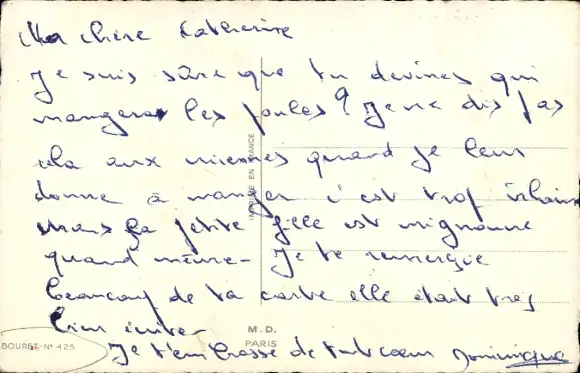 Ma chère Catherine
Je suis sûre que tu devines qui
mangera les poules? Je ne dis pas
cela aux miennes quand je leur
donne à manger c'est trop vilain
mais la petite fille est mignonne
quand même - Je te remercie
beaucoup de ta carte elle était très
bien écrite -
Je t'embrasse de tout cœur Dominique
IMPRIMÉ EN FRANCE
M.D.
PARIS
BOURET-N° 425